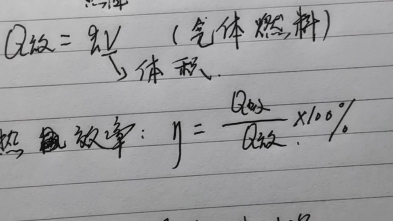 Q放 = qV (气体燃料)
体积.
热效率: η = Q / Q放 ×100%